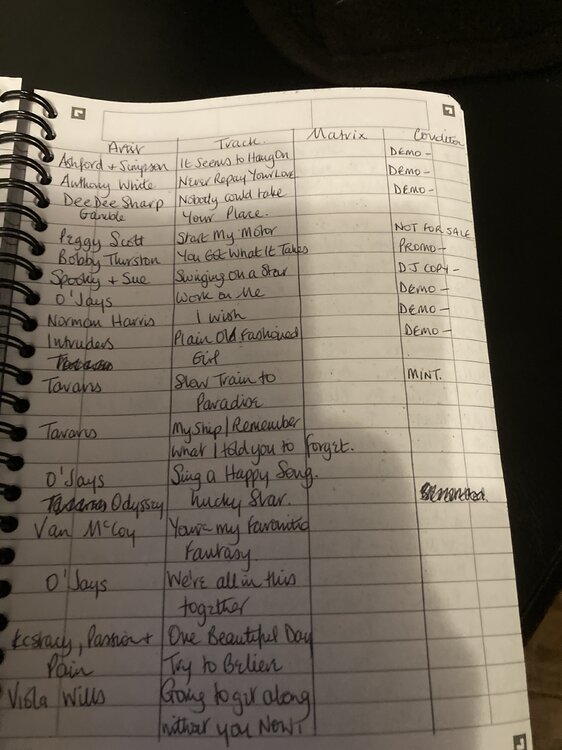 Artist Track. Matrix Condition
Ashford + Simpson It Seems to Hang On DEMO -
Anthony White Never Repay Your Love DEMO -
Dee Dee Sharp Nobody could take DEMO -
Gamble Your Place.
Peggy Scott Start My Motor NOT FOR SALE
Bobby Thurston You Got What It Takes PROMO -
Spooky + Sue Swinging on a Star DJ COPY -
O'Jays Work on Me DEMO -
Norman Harris I wish DEMO -
Intruders Plain Old Fashioned DEMO -
Girl
Tavares Slow Train to MINT.
Paradise
Tavares My Ship / Remember
what I told you to forget.
O'Jays Sing a Happy Song.
Odyssey Lucky Star.
Van McCoy You're my Favourite
Fantasy
O'Jays We're all in this
together
Ecstacy, Passion + One Beautiful Day
Pain Try to Believe
Viola Wills Going to get along
without you NOW!